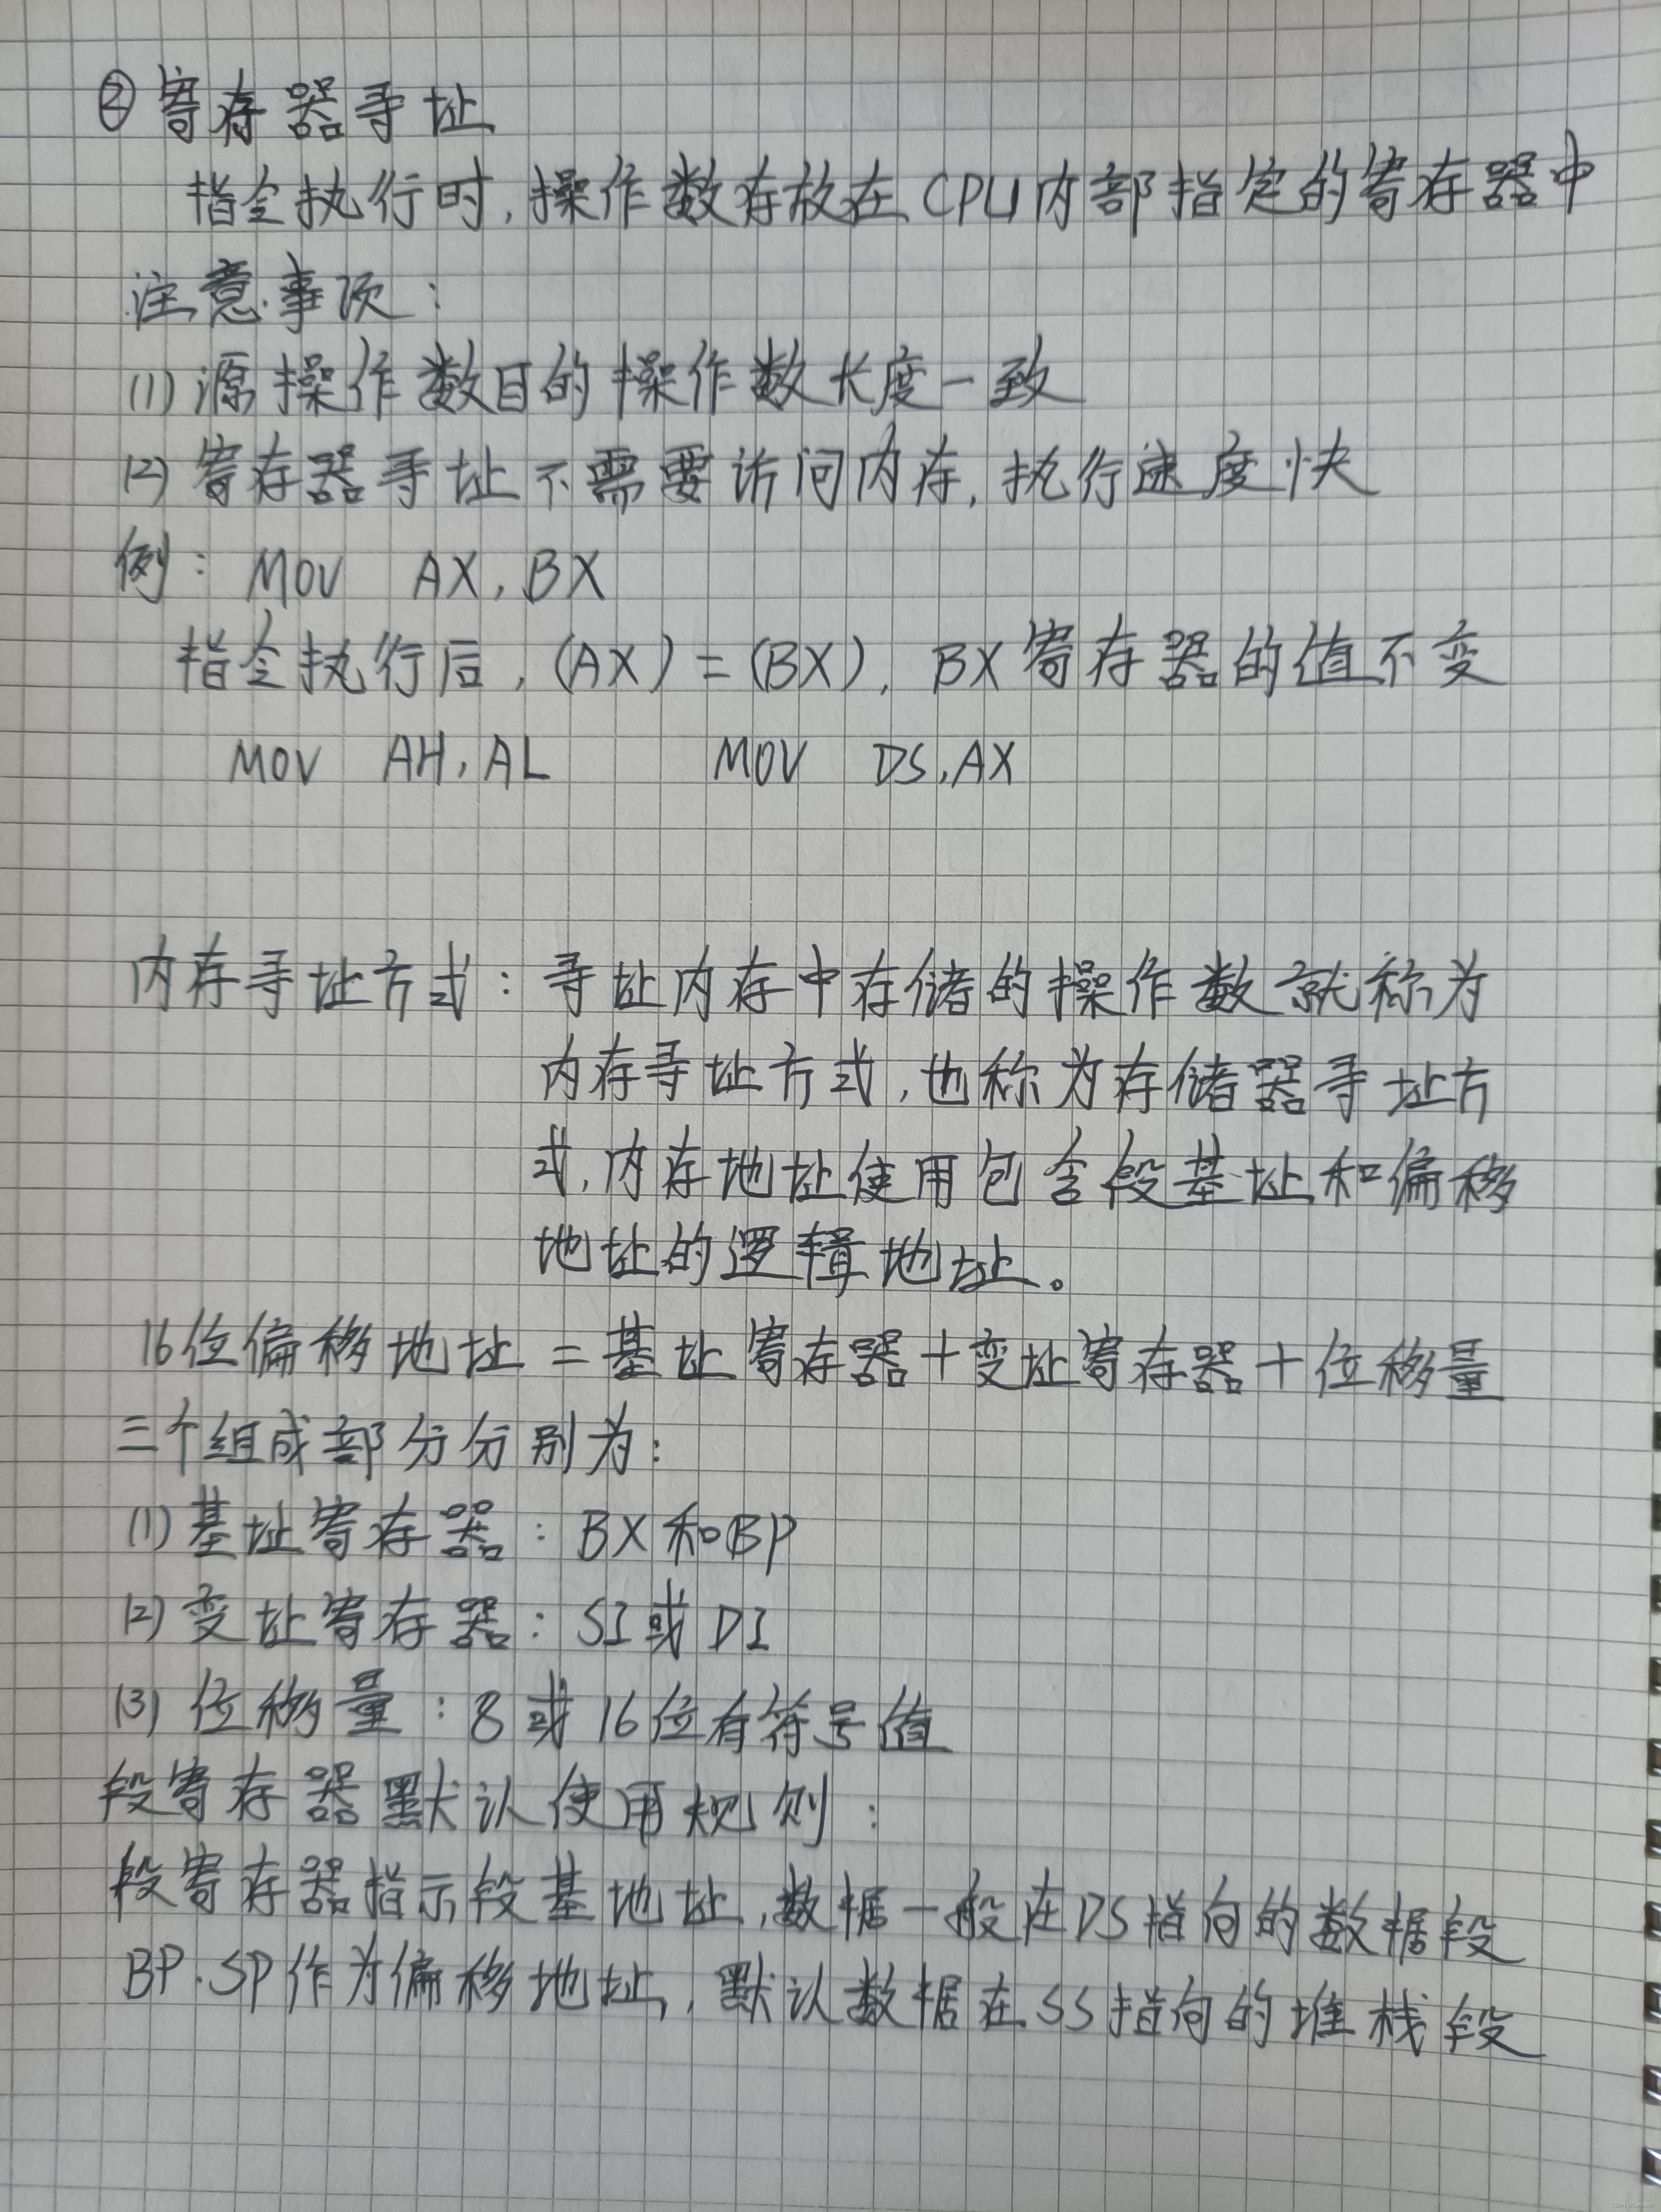 ②寄存器寻址
指令执行时,操作数存放在CPU内部指定的寄存器中
注意事项:
(1)源操作数目的操作数长度一致
(2)寄存器寻址不需要访问内存,执行速度快
例: MOV AX,BX
指令执行后,(AX)=(BX),BX寄存器的值不变
MOV AH,AL MOV DS,AX
内存寻址方式:寻址内存中存储的操作数就称为
内存寻址方式,也称为存储器寻址方
式,内存地址使用包含段基址和偏移
地址的逻辑地址。
16位偏移地址=基址寄存器+变址寄存器+位移量
三个组成部分分别为:
(1)基址寄存器:BX和BP
(2)变址寄存器:SI或DI
(3)位移量:8或16位有符号值
段寄存器默认使用规则:
段寄存器指示段基地址,数据一般在DS指向的数据段
BP.SP作为偏移地址,默认数据在SS指向的堆栈段